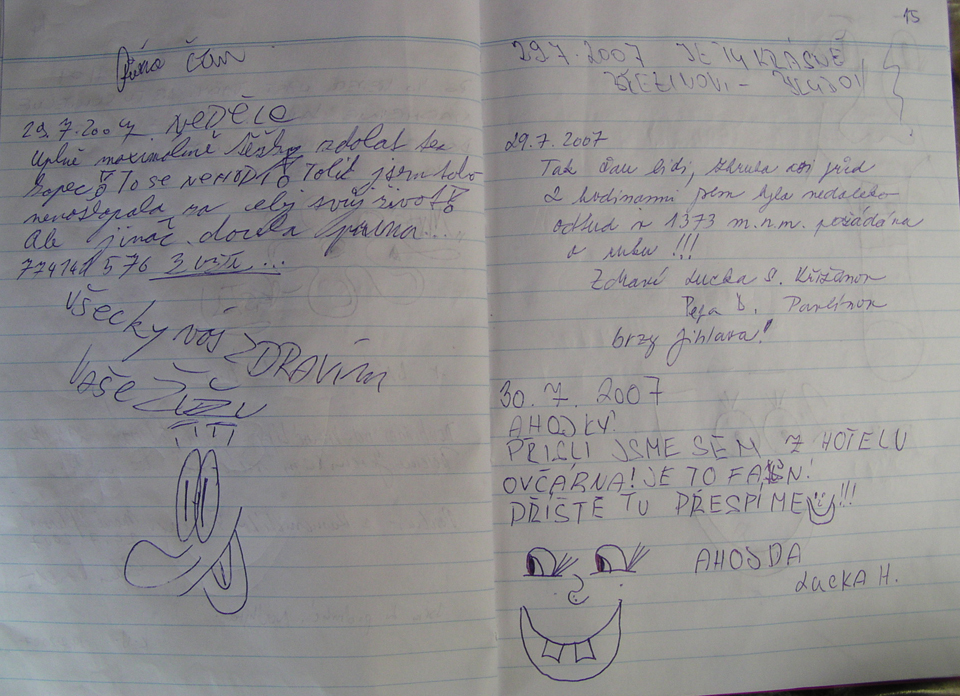 29.7.2007 NEDĚLE
úplně maximálně těžký zdolat ten
kopeček To se NEHODÍ Tolik jsem toho
nenošlapala za celý svůj život
Ale jináč docela
576 3 vıšı...
Všecky vás ZDRAVÍM
VAŠE ŽIŽU
15
29.7.2007 JE TU KRÁSNĚ
29.7.2007
Tak čau lidi, zhruba asi před
2 hodinami jsem byla nedaleko
odtud v 1373 m.n.m. požádána
o ruku!!!
Zdraví Lucka S. Křižanov
Pepa D. Pavlínov
brzy Jihlava!
30.7.2007
AHOJKY!
PŘIŠLI JSME SEM Z HOTELU
OVČÁRNA! JE TO FAJN!
PŘÍŠTĚ TU PŘESPÍME!!!
AHOJDA
LUCKA H.